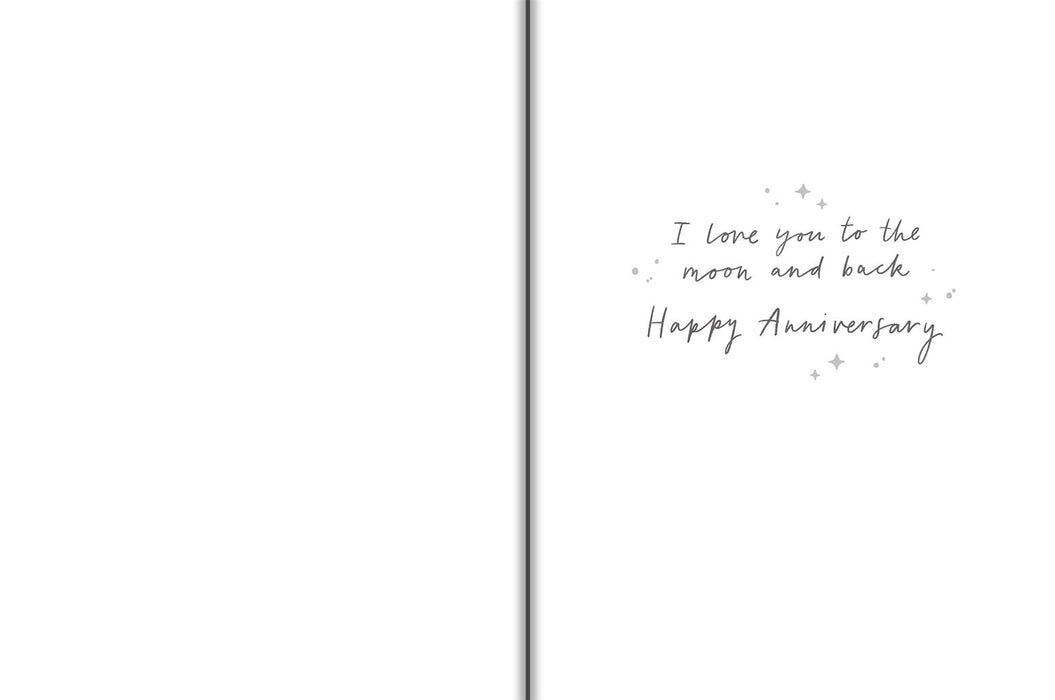 I love you to the
moon and back
Happy Anniversary